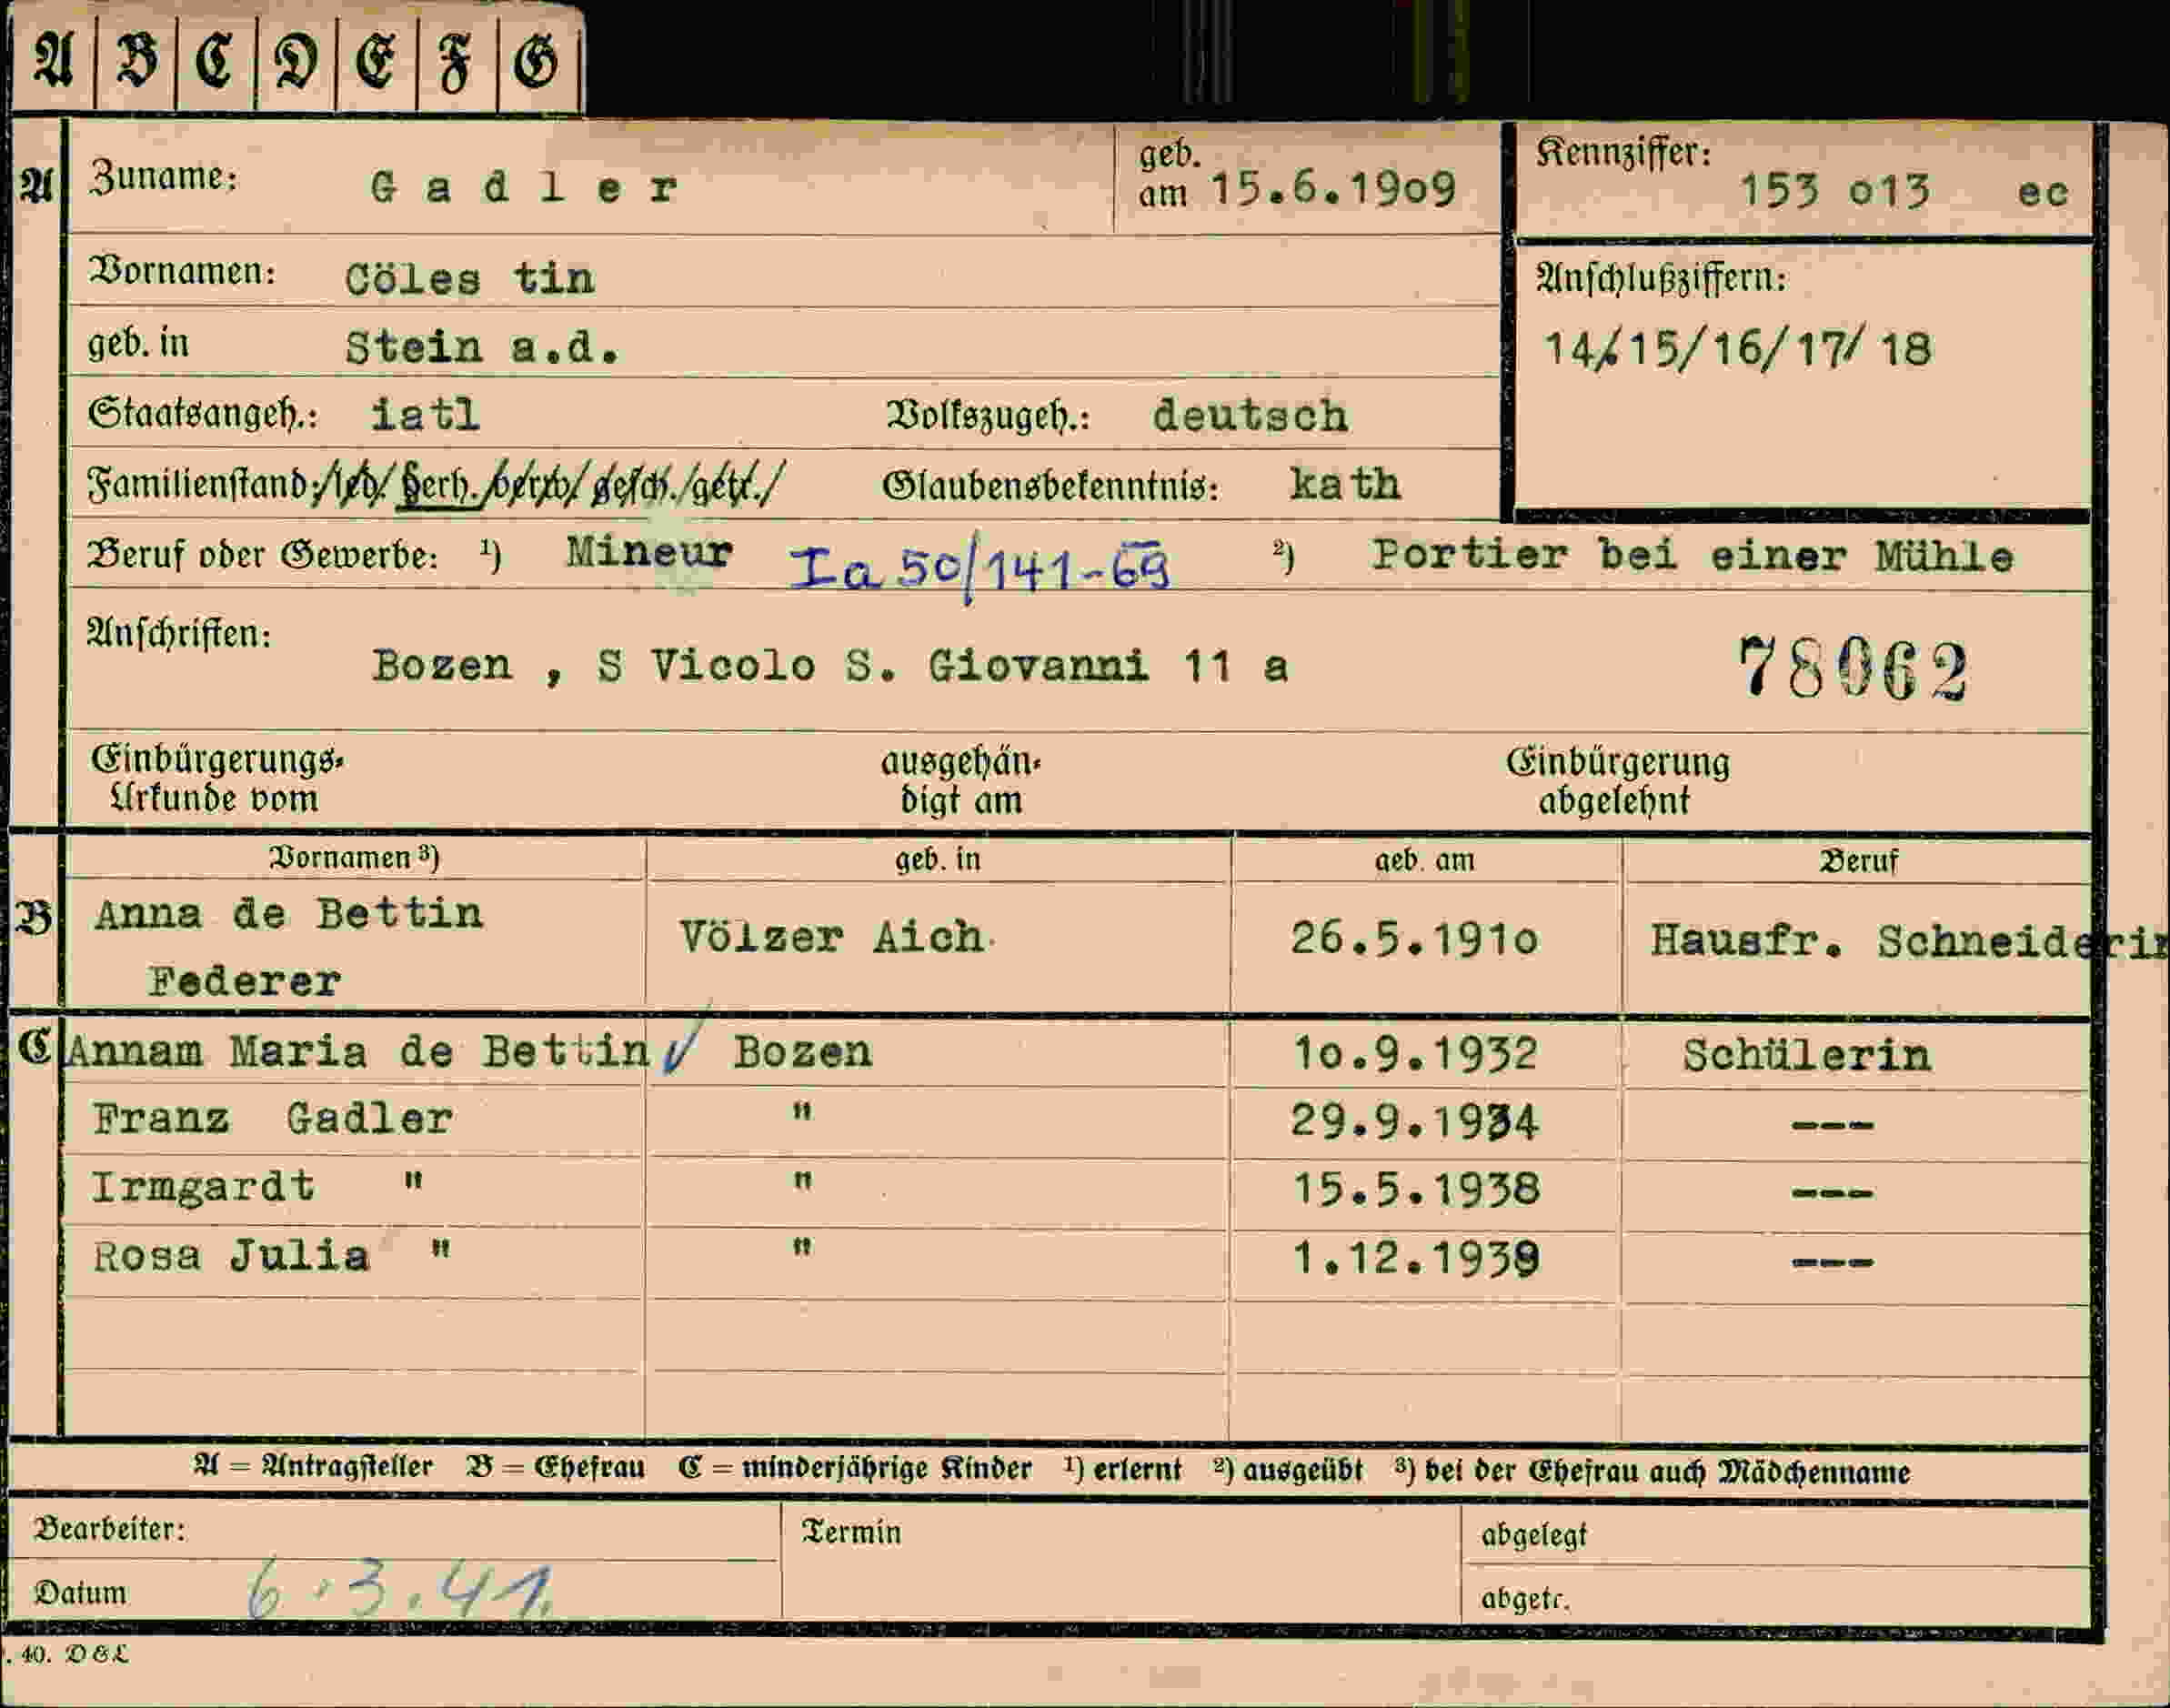 A B C D E F G
A Zuname: Gadler geb. am 15.6.19o9 Kennziffer: 153 o13 ec
Vornamen: Cöles tin Anschlußziffern:
geb. in Stein a.d. 14/15/16/17/ 18
Staatsangeh.: iatl Volkszugeh.: deutsch
Familienstand: led. verh. verw. gesch./getr./ Glaubensbekenntnis: kath
Beruf oder Gewerbe: ¹) Mineur Ia 50/141-69 ²) Portier bei einer Mühle
Anschriften:
Bozen , S Vicolo S. Giovanni 11 a 78062
Einbürgerungs- ausgehän- Einbürgerung
Urkunde vom digt am abgelehnt
Vornamen ³) geb. in geb. am Beruf
B Anna de Bettin Völzer Aich 26.5.191o Hausfr. Schneiderin
Federer
C Annam Maria de Bettin Bozen 1o.9.1932 Schülerin
Franz Gadler " 29.9.1934 ---
Irmgardt " " 15.5.1938 ---
Rosa Julia " " 1.12.1939 ---
A = Antragsteller B = Ehefrau C = minderjährige Kinder ¹) erlernt ²) ausgeübt ³) bei der Ehefrau auch Mädchenname
Bearbeiter: Termin abgelegt
Datum 6.3.41. abgetr.
. 40. D & L